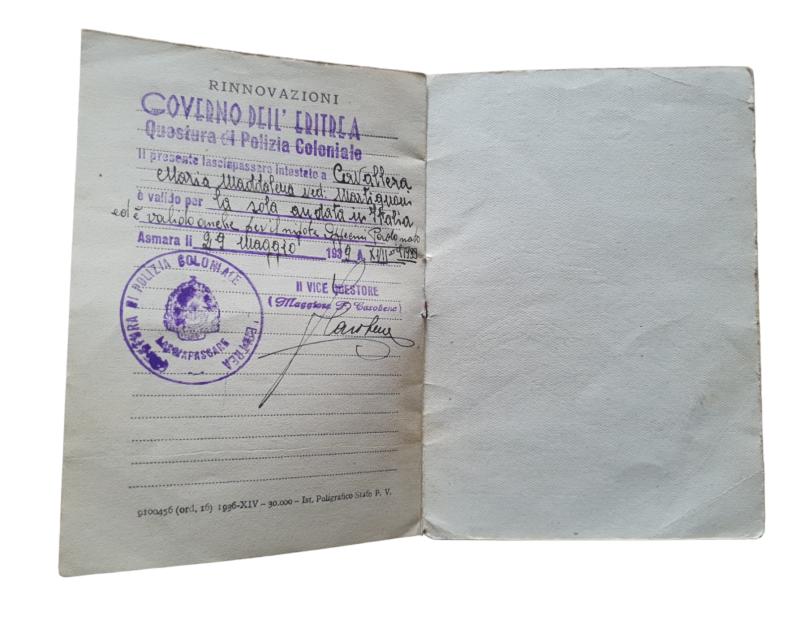 RINNOVAZIONI
GOVERNO DELL' ERITREA
Questura di Polizia Coloniale
Il presente lasciapassare intestato a Cervallera
Maria Maddalena ved. Martignoni
è valido per la sola andata in Italia
ed è valido anche per il nipote
Asmara li 29 Maggio 1939 A. XVII
Il VICE QUESTORE
(Maggiore F. Casobene)
QUESTURA DI POLIZIA COLONIALE
ERITREA
LASCIAPASSARE
9100456 (ord, 16) 1936-XIV – 30.000 – Ist. Poligrafico Stato P. V.